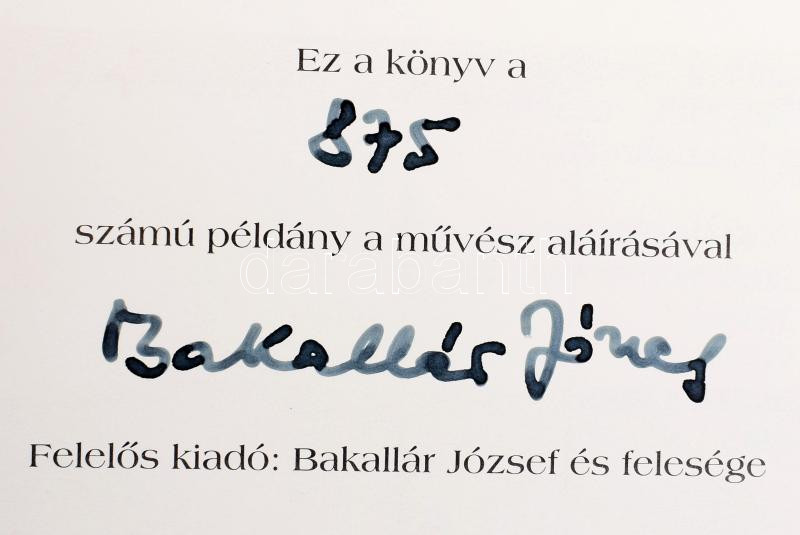 Ez a könyv a
875
számú példány a művész aláírásával
darabanth
Bakallár József
Felelős kiadó: Bakallár József és felesége